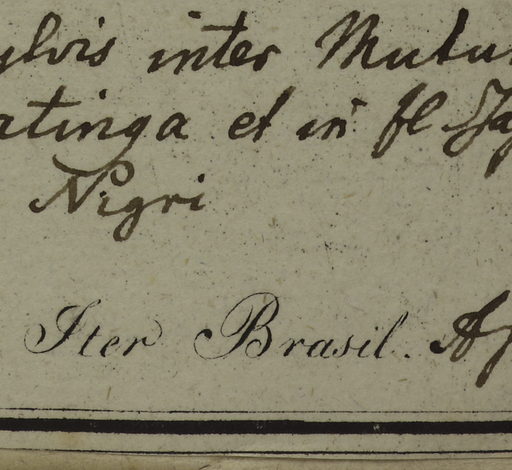 ylvis inter Mutu
atinga et in fl Ja
Nigri
Iter Brasil. Ap